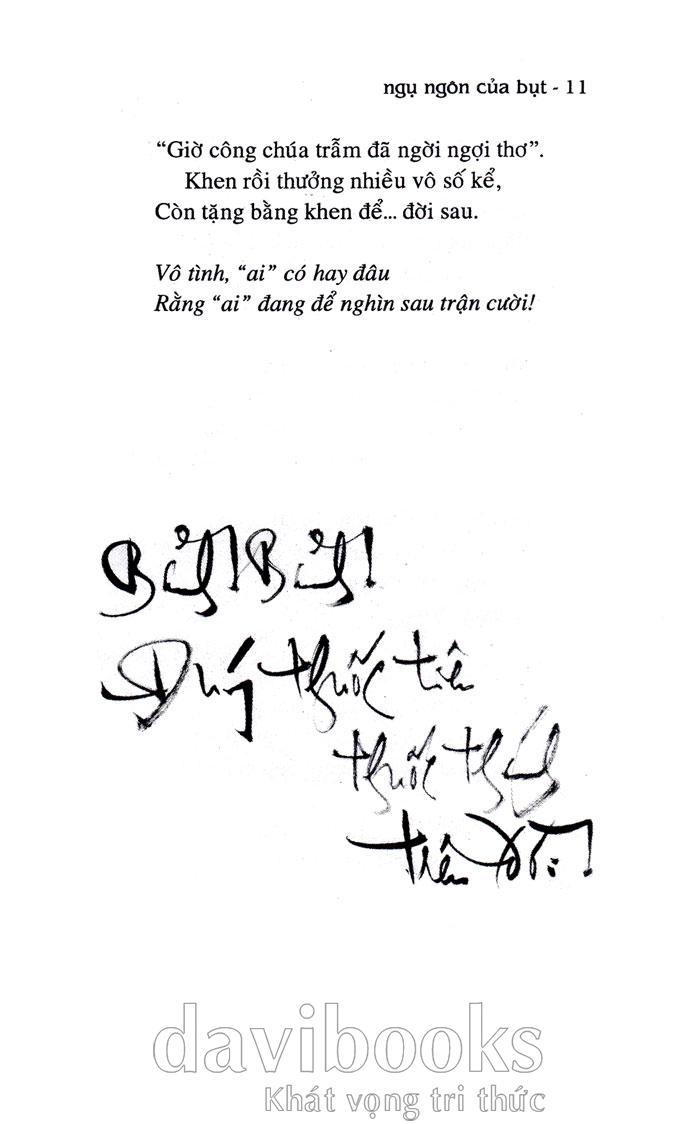 ngụ ngôn của bụt - 11
“Giờ công chúa trẫm đã ngời ngợi thơ”.
Khen rồi thưởng nhiều vô số kể,
Còn tặng bằng khen để... đời sau.
Vô tình, “ai” có hay đâu
Rằng “ai” đang để nghìn sau trận cười!
thuốc tiên
thuốc thánh
tiên
davibooks
Khát vọng tri thức